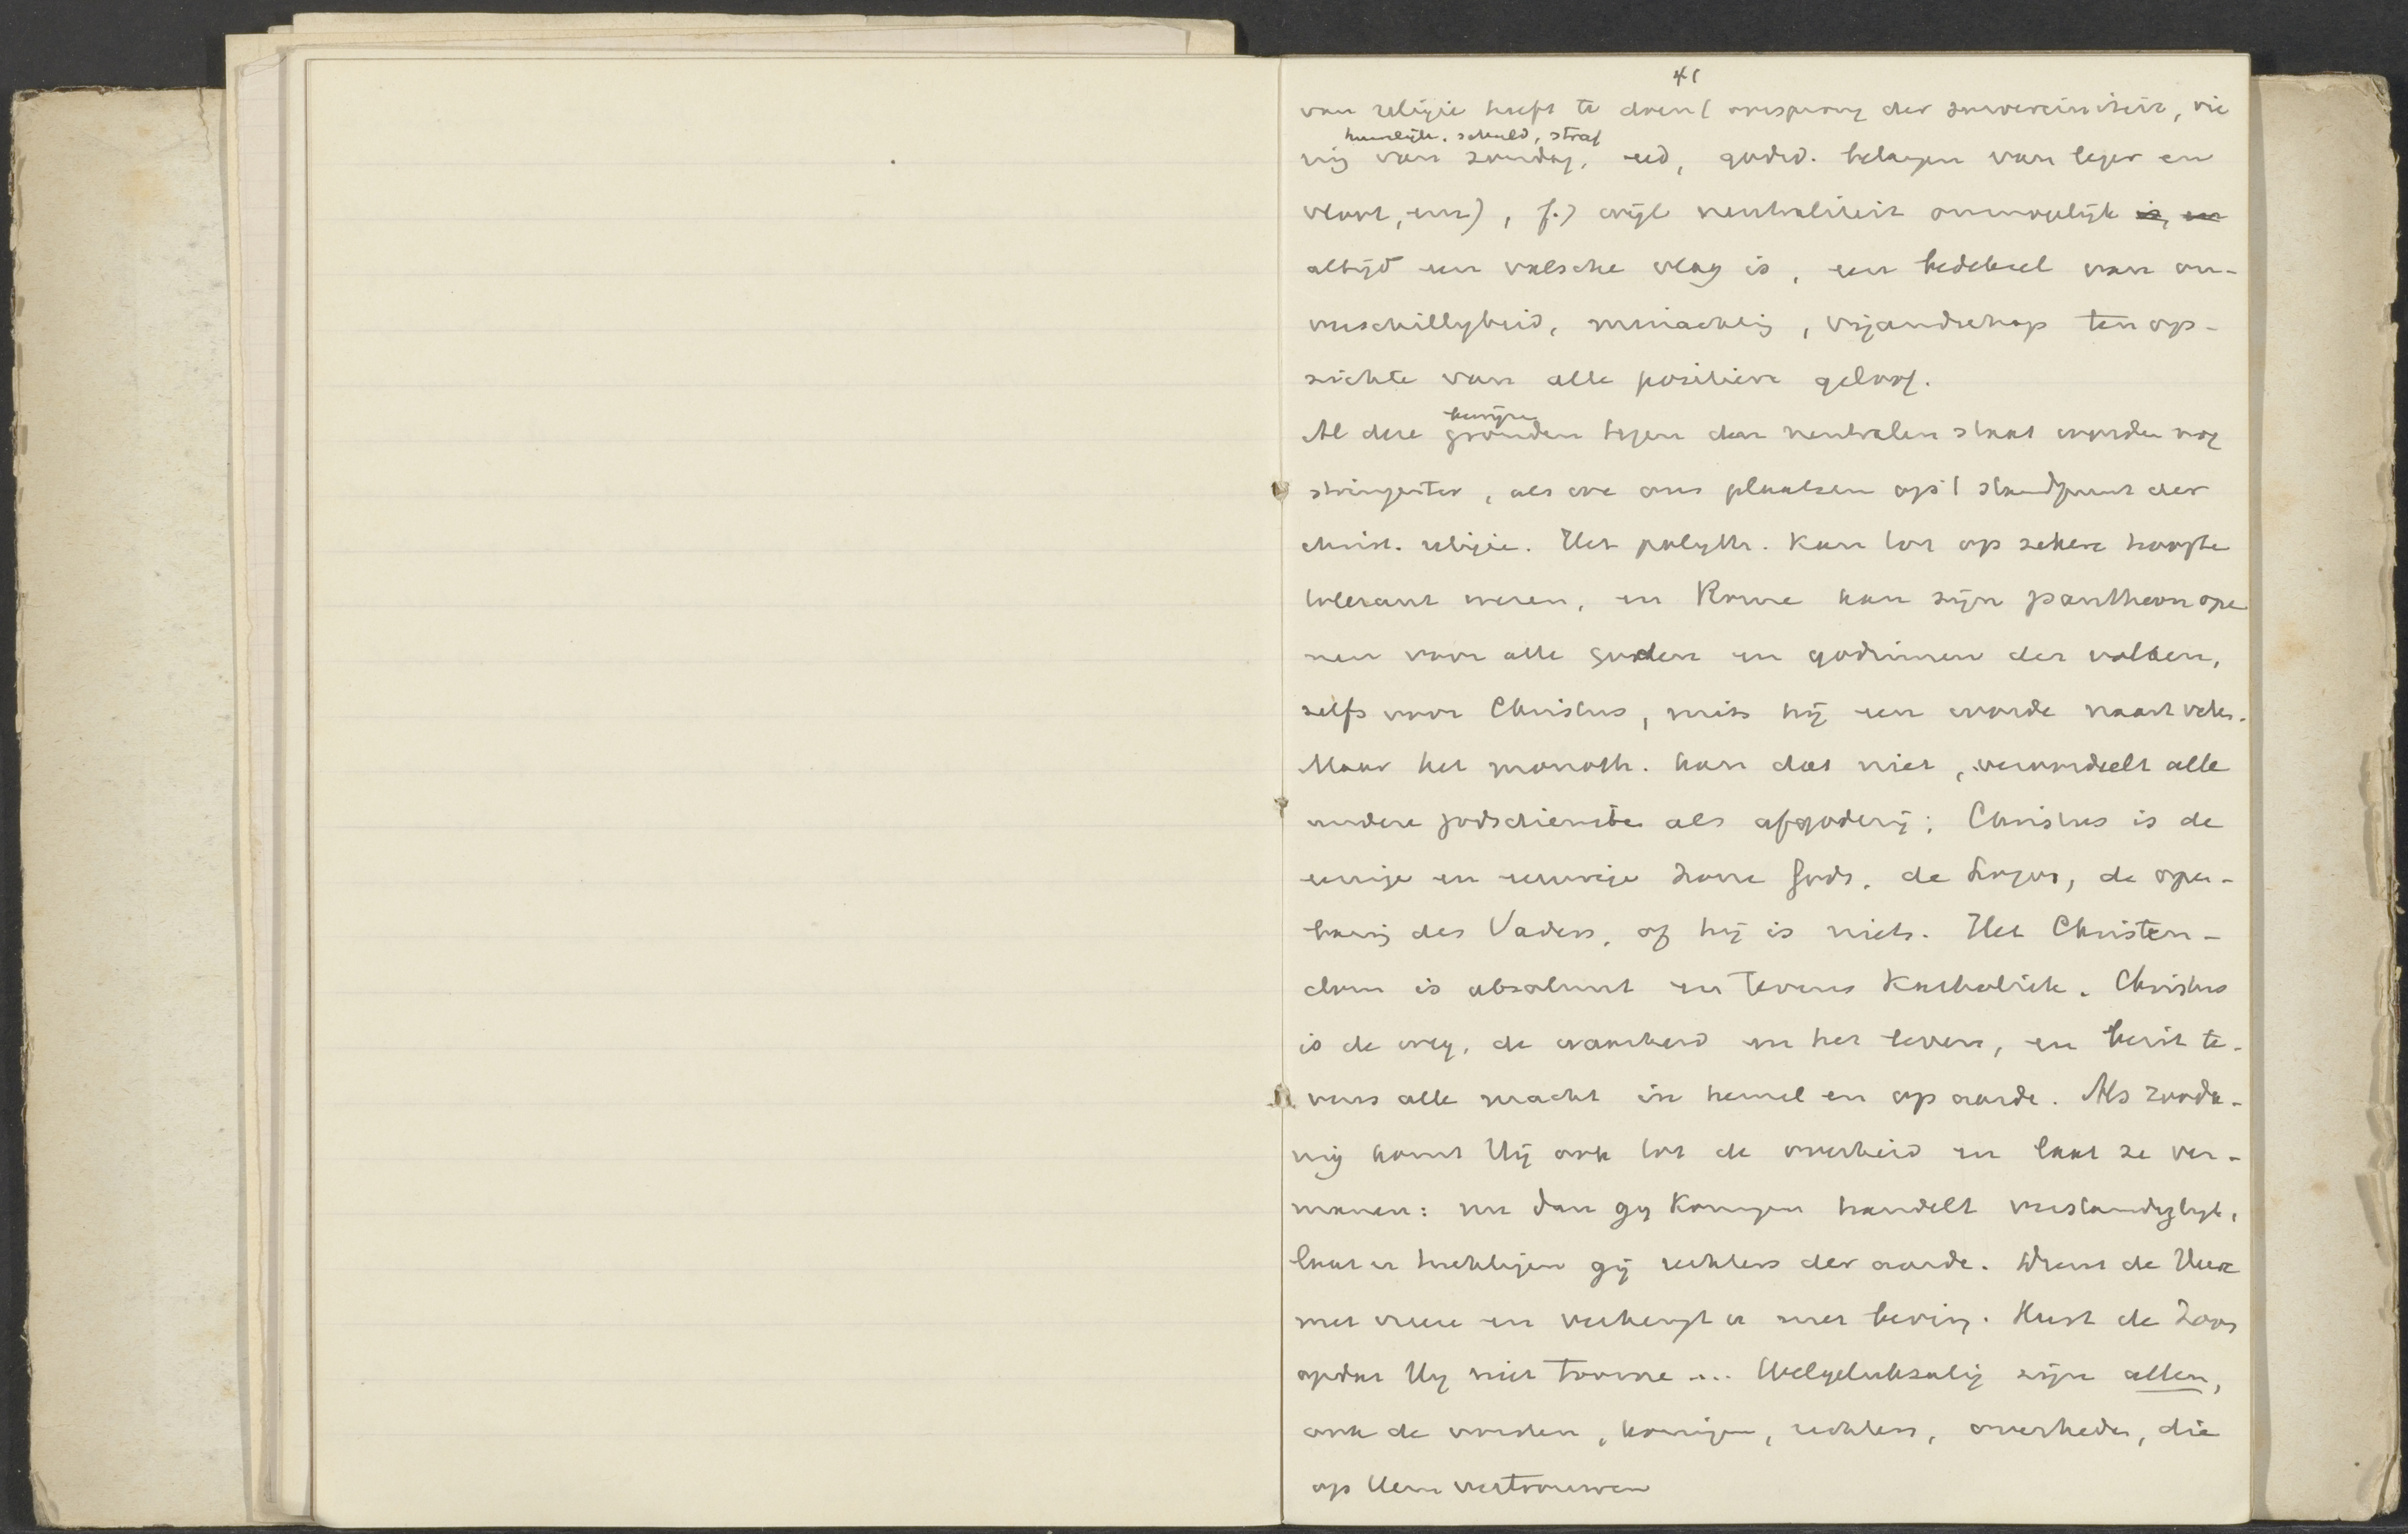 41
van religie heeft te doen (oorsprong der souvereiniteit, vie
huwelijk, schuld, straf
ring van zondag, eed, godsd. belangen van leger en
vloot, enz), f.) wijl neutraliteit onmogelijk is, en
altijd een valsche vlag is, een bedeksel van on-
verschilligheid, minachting, vijandschap ten op-
zichte van alle positieve geloof.
bewijzen
Al deze gronden tegen den neutralen staat worden nog
stringenter, als we ons plaatsen op 't standpunt der
christ. religie. Het polyth. kan tot op zekere hoogte
tolerant wezen, en Rome kan zijn pantheon ope
nen voor alle goden en godinnen der volken,
zelfs voor Christus, mits hij een worde naast velen.
Maar het monoth. kan dat niet, veroordeelt alle
andere godsdiensten als afgoderij; Christus is de
eenige en eeuwige Zone Gods, de Logos, de open-
baring des Vaders, of hij is niets. Het Christen-
dom is absoluut en tevens Katholiek. Christus
is de weg, de waarheid en het leven, en bezit te-
vens alle macht in hemel en op aarde. Als zooda-
nig komt Hij ook tot de overheid en laat ze ver-
manen: nu dan gij Koningen handelt verstandiglijk,
laat u tuchtigen gij rechters der aarde. Dient de Heere
met vreeze en verheugt u met beving. Kust de Zoon
opdat Hij niet toorne .... Welgelukzalig zijn allen,
ook de vorsten, koningen, rechters, overheden, die
op Hem vertrouwen